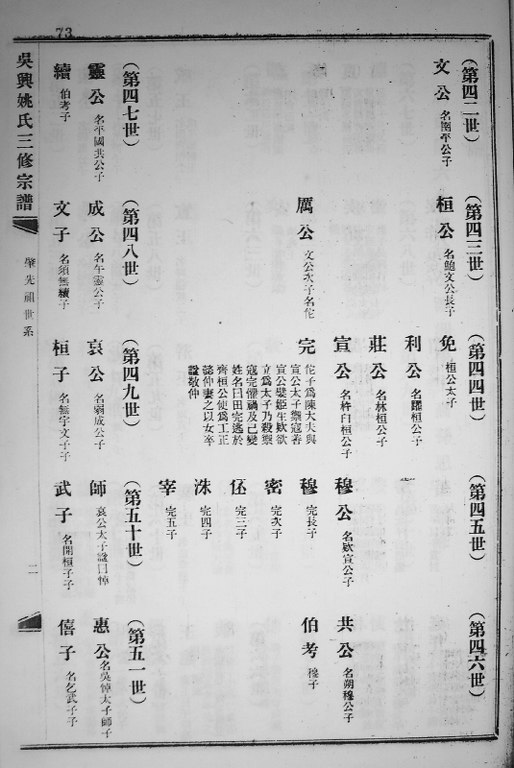 73
(第四二世)
文公 名圉平公子
(第四三世)
桓公 名鮑文公長子
厲公 文公次子名佗
(第四四世)
免 桓公太子
利公 名躍桓公子
莊公 名林桓公子
宣公 名杵臼桓公子
完
佗子爲陳大夫與
宣公太子禦寇善
宣公嬖姬生款欲
立爲太子乃殺禦
寇完懼禍及己變
姓名曰田完逃於
齊桓公使爲工正
懿仲妻之以女卒
諡敬仲
(第四五世)
穆公 名款宣公子
穆 完長子
密 完次子
伾 完三子
洙 完四子
宰 完五子
(第四六世)
共公 名朔穆公子
伯考 穆子
(第四七世)
靈公 名平國共公子
續 伯考子
(第四八世)
成公 名午靈公子
文子 名須無續子
(第四九世)
哀公 名弱成公子
桓子 名無宇文子子
(第五十世)
師 哀公太子諡曰悼
武子 名開桓子子
(第五一世)
惠公 名吳悼太子師子
僖子 名乞武子子
吳興姚氏三修宗譜
肇先祖世系
二